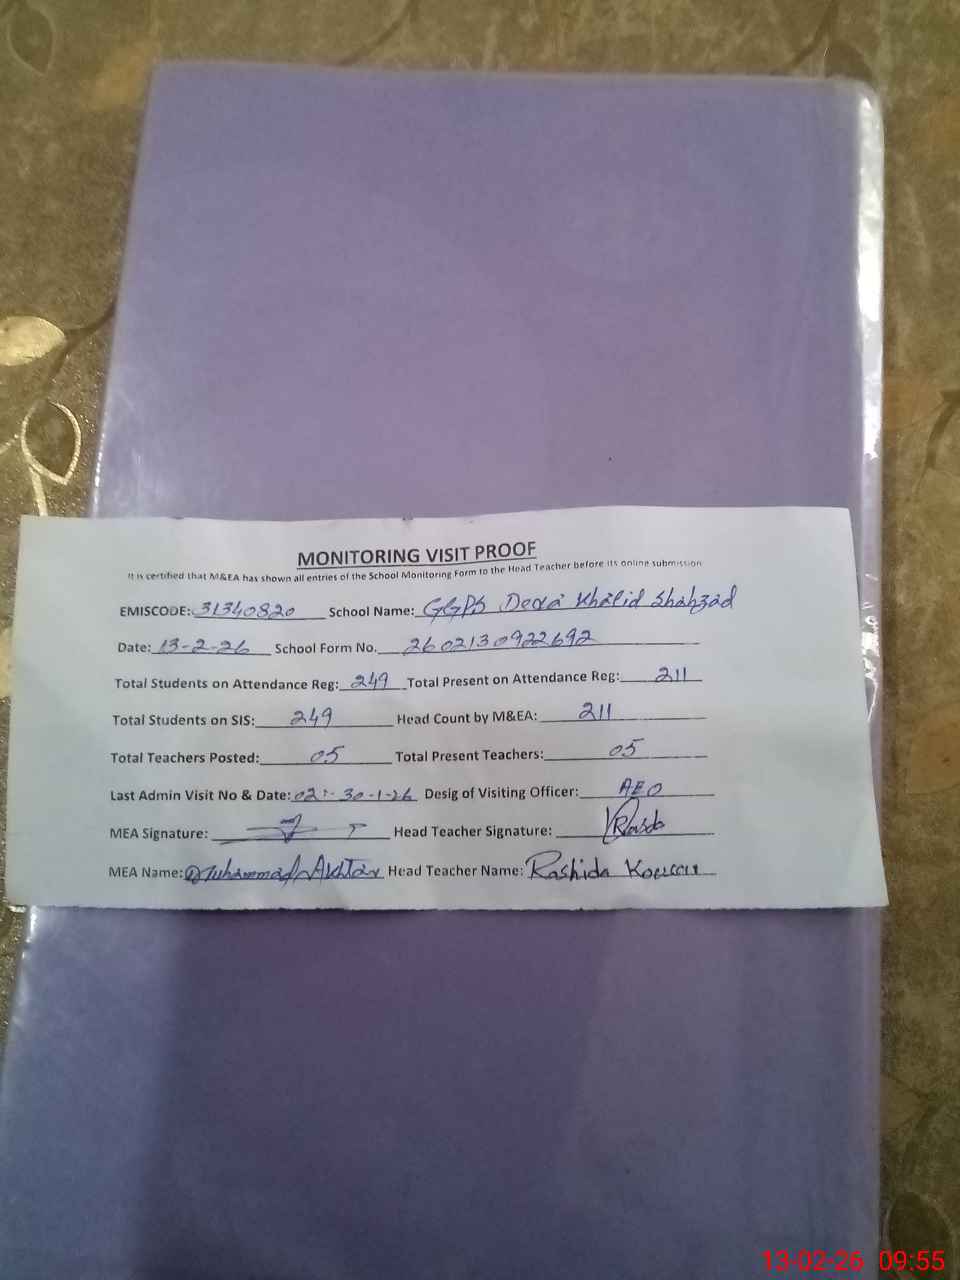 MONITORING VISIT PROOF
It is certified that M&EA has shown all entries of the School Monitoring Form to the Head Teacher before its online submission
EMISCODE: 31340820 School Name: GGPS Dera Khalid Shahzad
Date: 13-2-26 School Form No. 2602130922692
Total Students on Attendance Reg: 249 Total Present on Attendance Reg: 211
Total Students on SIS: 249 Head Count by M&EA: 211
Total Teachers Posted: 05 Total Present Teachers: 05
Last Admin Visit No & Date: 02:- 30-1-26 Desig of Visiting Officer: AEO
MEA Signature: Head Teacher Signature:
MEA Name: Muhammad Akhtar Head Teacher Name: Rashida Kousar
13-02-26 09:55